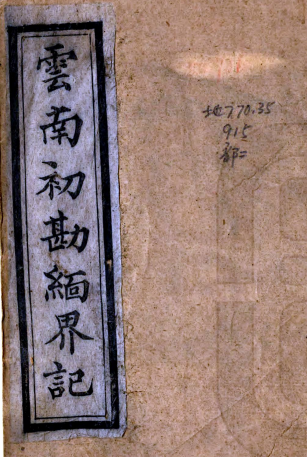 雲南初勘緬界記
地770.35
915
部二